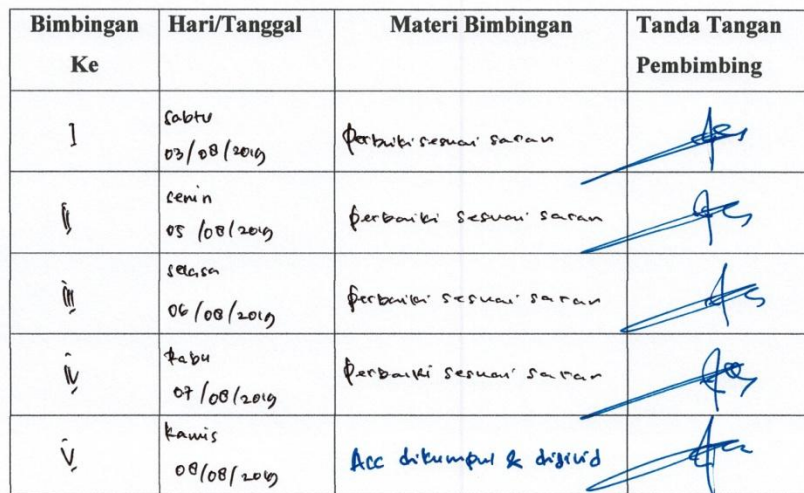 Bimbingan Ke Hari/Tanggal Materi Bimbingan Tanda Tangan Pembimbing
I Sabtu 03/08/2019 Perbaiki sesuai saran
II Senin 05/08/2019 perbaiki sesuai saran
III Selasa 06/08/2019 perbaiki sesuai saran
IV Rabu 07/08/2019 perbaiki sesuai saran
V Kamis 08/08/2019 Acc dikumpul & dijilid